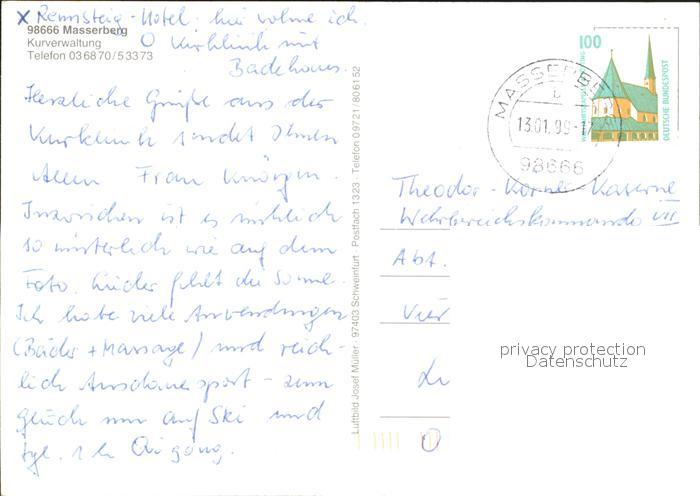 x Rennsteig-Hotel. hier wohne ich.
98666 Masserberg
Kurverwaltung
Telefon 03 68 70 / 5 33 73
O Kurklinik mit
Badehaus.
Herzliche Grüße aus der
Kurklinik sendet Ihnen
Allen Frau
Inzwischen ist es wirklich
so winterlich wie auf dem
Foto. Leider fehlt die Sonne.
Ich habe viele Anwendungen
(Bäder + Massage) und reich-
lich Ausdauersport - zum
Glück nur auf Ski und
tgl. 1 h Qigong.
Luftbild Josef Müller · 97403 Schweinfurt · Postfach 1323 · Telefon 09721/806152
100
DEUTSCHE BUNDESPOST
MASSERBE
b
13.01.99-17
98666
Theodor-Körner-Kaserne
Wehrbereichskommando VII
Abt.
Vier
privacy protection
Datenschutz